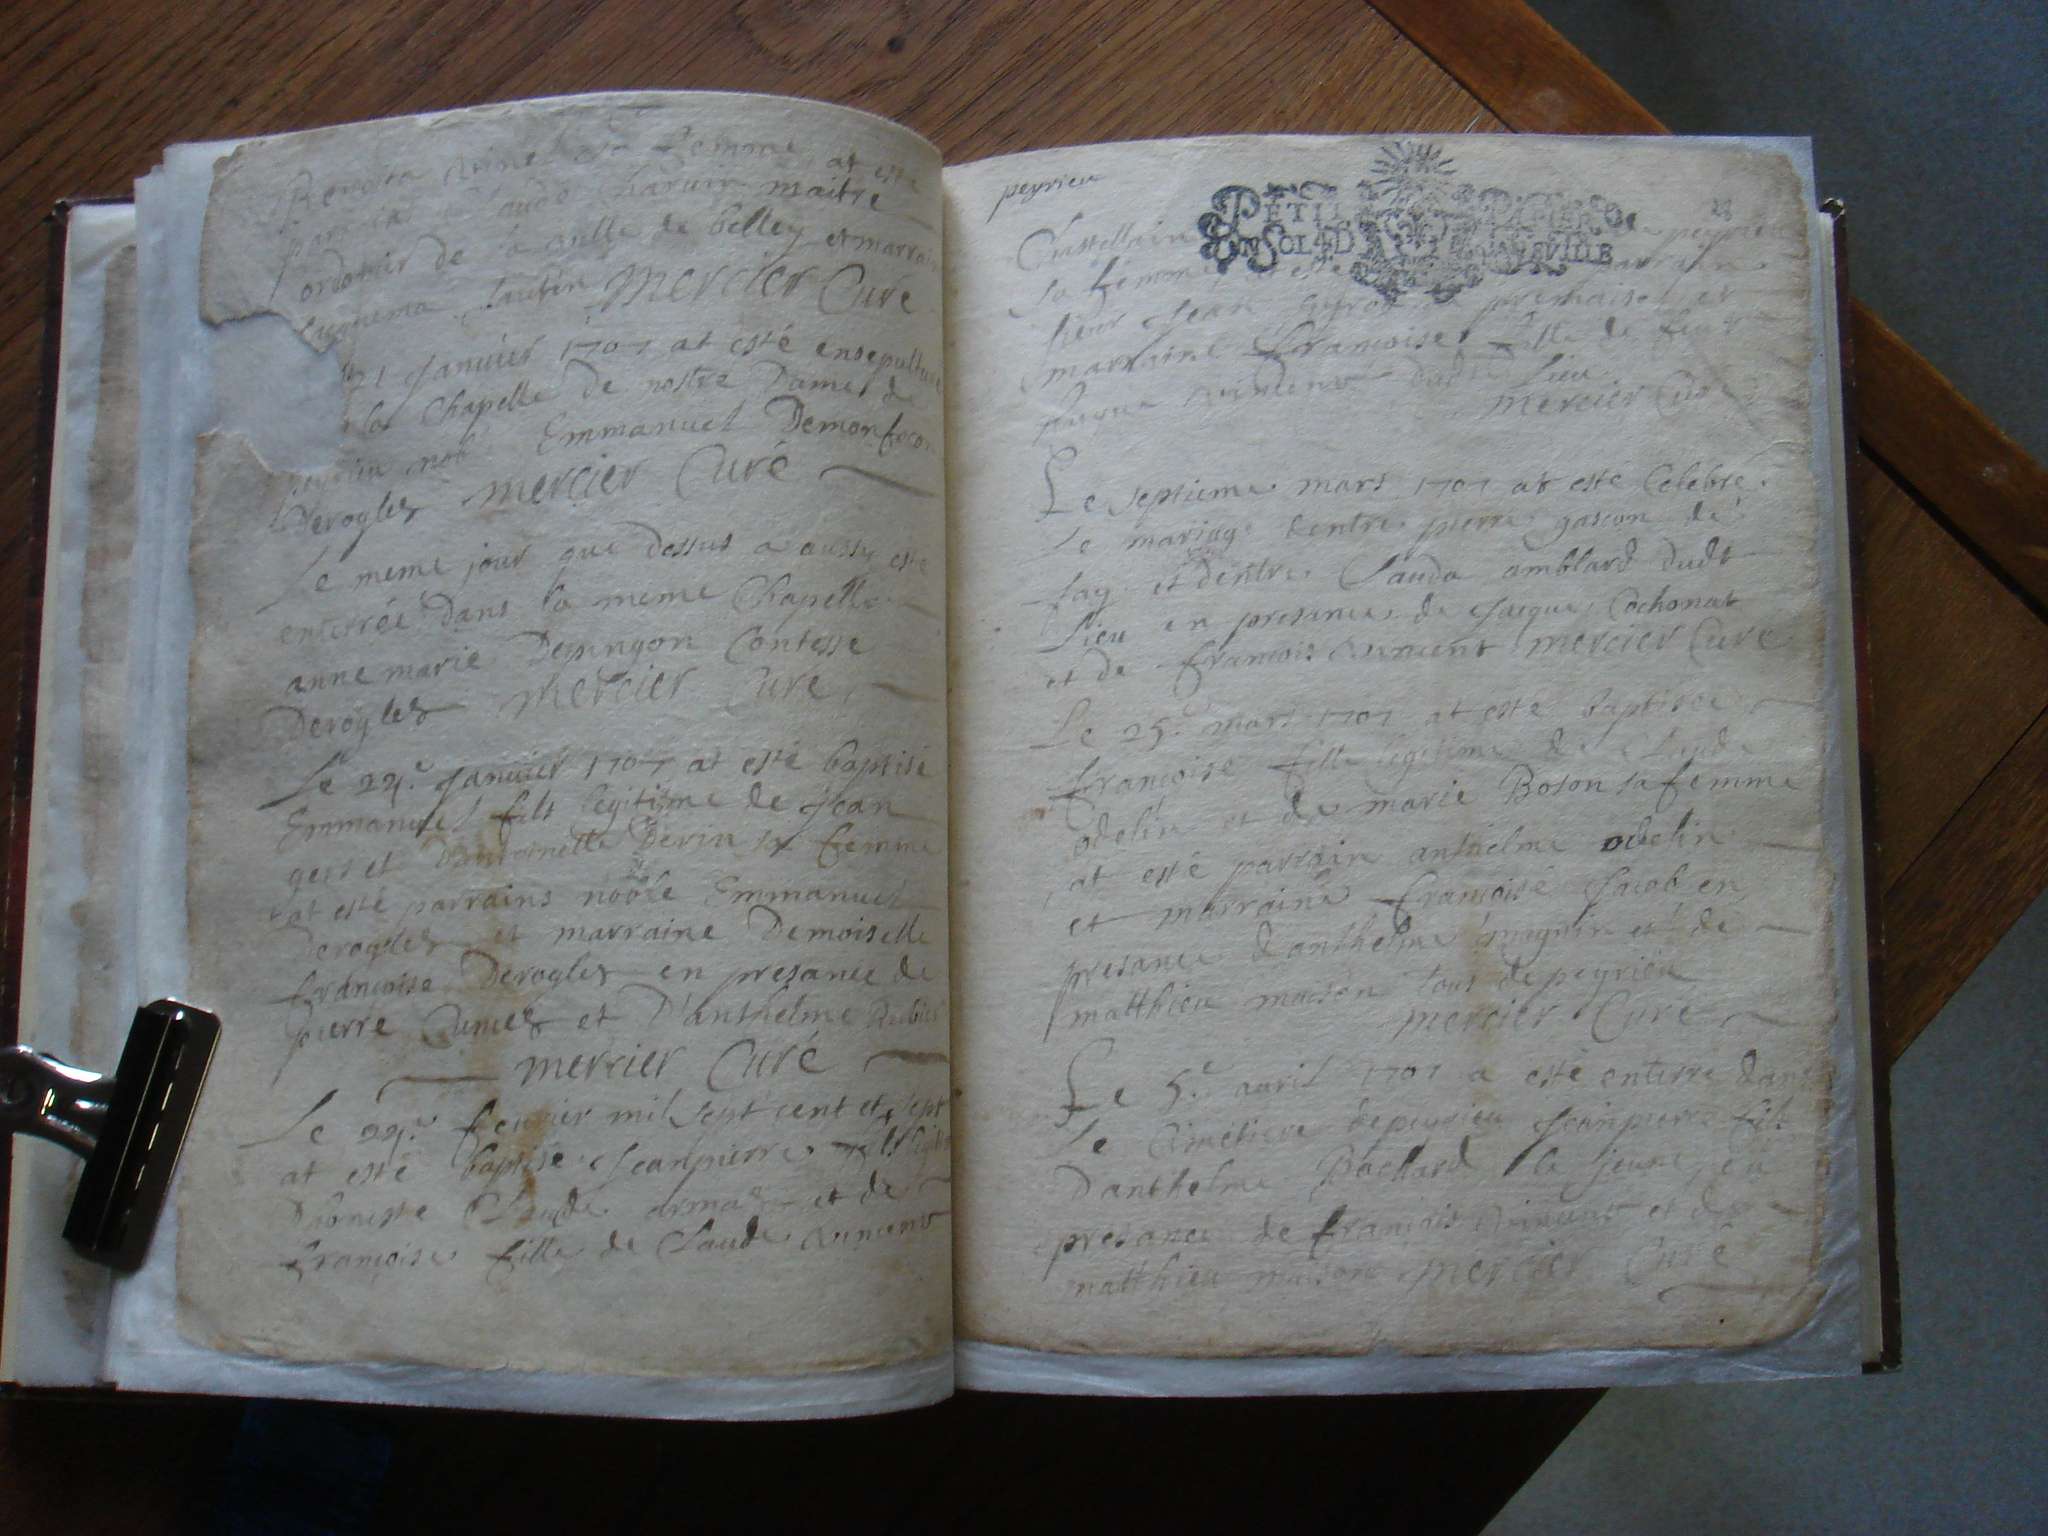 Benoita sa femme at esté
Claude Charuin maitre
ordonnir de la ville de belley et marrain
Mercier Curé
21 Januier 1707 at esté ensepulturé
la Chapelle de nostre Dame de
Emmanuel Demonfocon
Derogles mercier Curé
Le meme jour que dessus a aussy esté
enterrée dans la meme Chapelle
anne marie Depingon Contesse
Derogles mercier Curé
Le 22e. Januier 1707 at esté baptisé
Emmanuel fils legitime de Jean
et Dantoinette Devin sa femme
at esté parrains noble Emmanuel
Derogles et marraine Demoiselle
francoise Derogles en presance de
pierre et D'anthelme Rubier
mercier Curé
Le 22e. feurier mil sept cent et sept
at esté baptisé Jeanpierre fils
Claude armas et de
françoise fille de Claude
peyrieu 28
PETIT PAPIER
UN SOL 4 D LA FEUILLE
Chastellain peyrieu
sa femme parrain
sieur Jean premaise et
marraine francoise fille de feu
dudt Lieu
Mercier Curé
Le septieme mars 1707 at esté Celebré
Le mariage dentre pierre gascon de
fay et dentre Clauda amblard dudt
Lieu en presance de Jacque Cochonat
et de francois mercier Curé
Le 25e. mars 1707 at esté baptisée
françoise fille legitime de Claude
odelin et de marie Boson sa femme
at esté parrain anthelme odelin
et marraine francoise Jacob en
presance d'anthelme magnin et de
matthieu maison tous de peyrieu
mercier Curé
Le 5e. auril 1707 a esté enterré dans
Le Cimetiere de peyrieu Jeanpierre fils
Danthelme Baillard le jeune en
presance de francois et de
matthieu maison mercier Curé